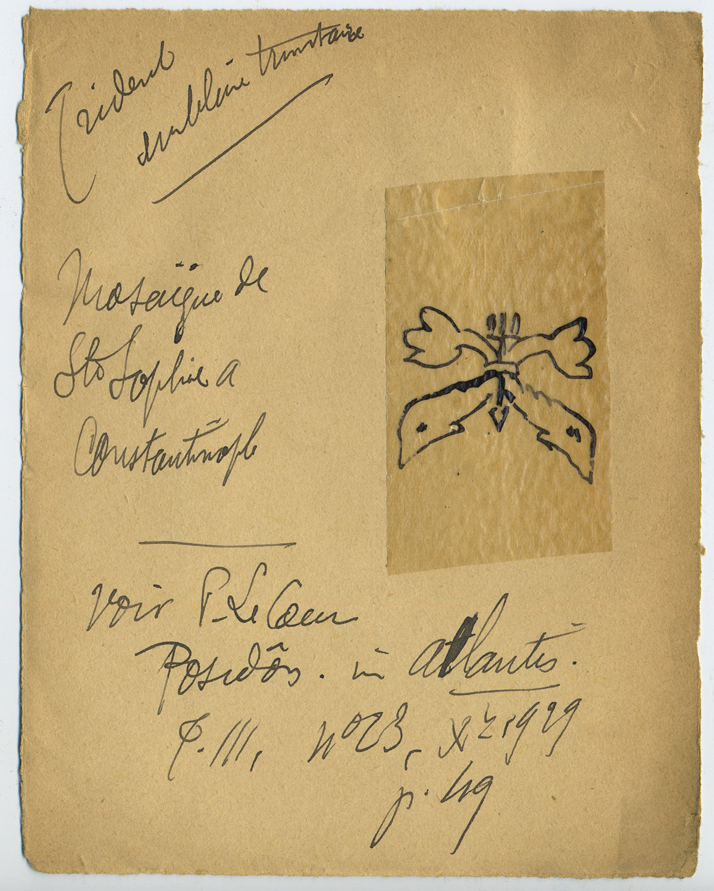 Trident
emblème trinitaire
Mosaïque de
Ste Sophie a
Constantinople
Voir P. Le Cour
Poseidôn. in Atlantis.
T. III, n° 23, Xbre 1929
p. 49